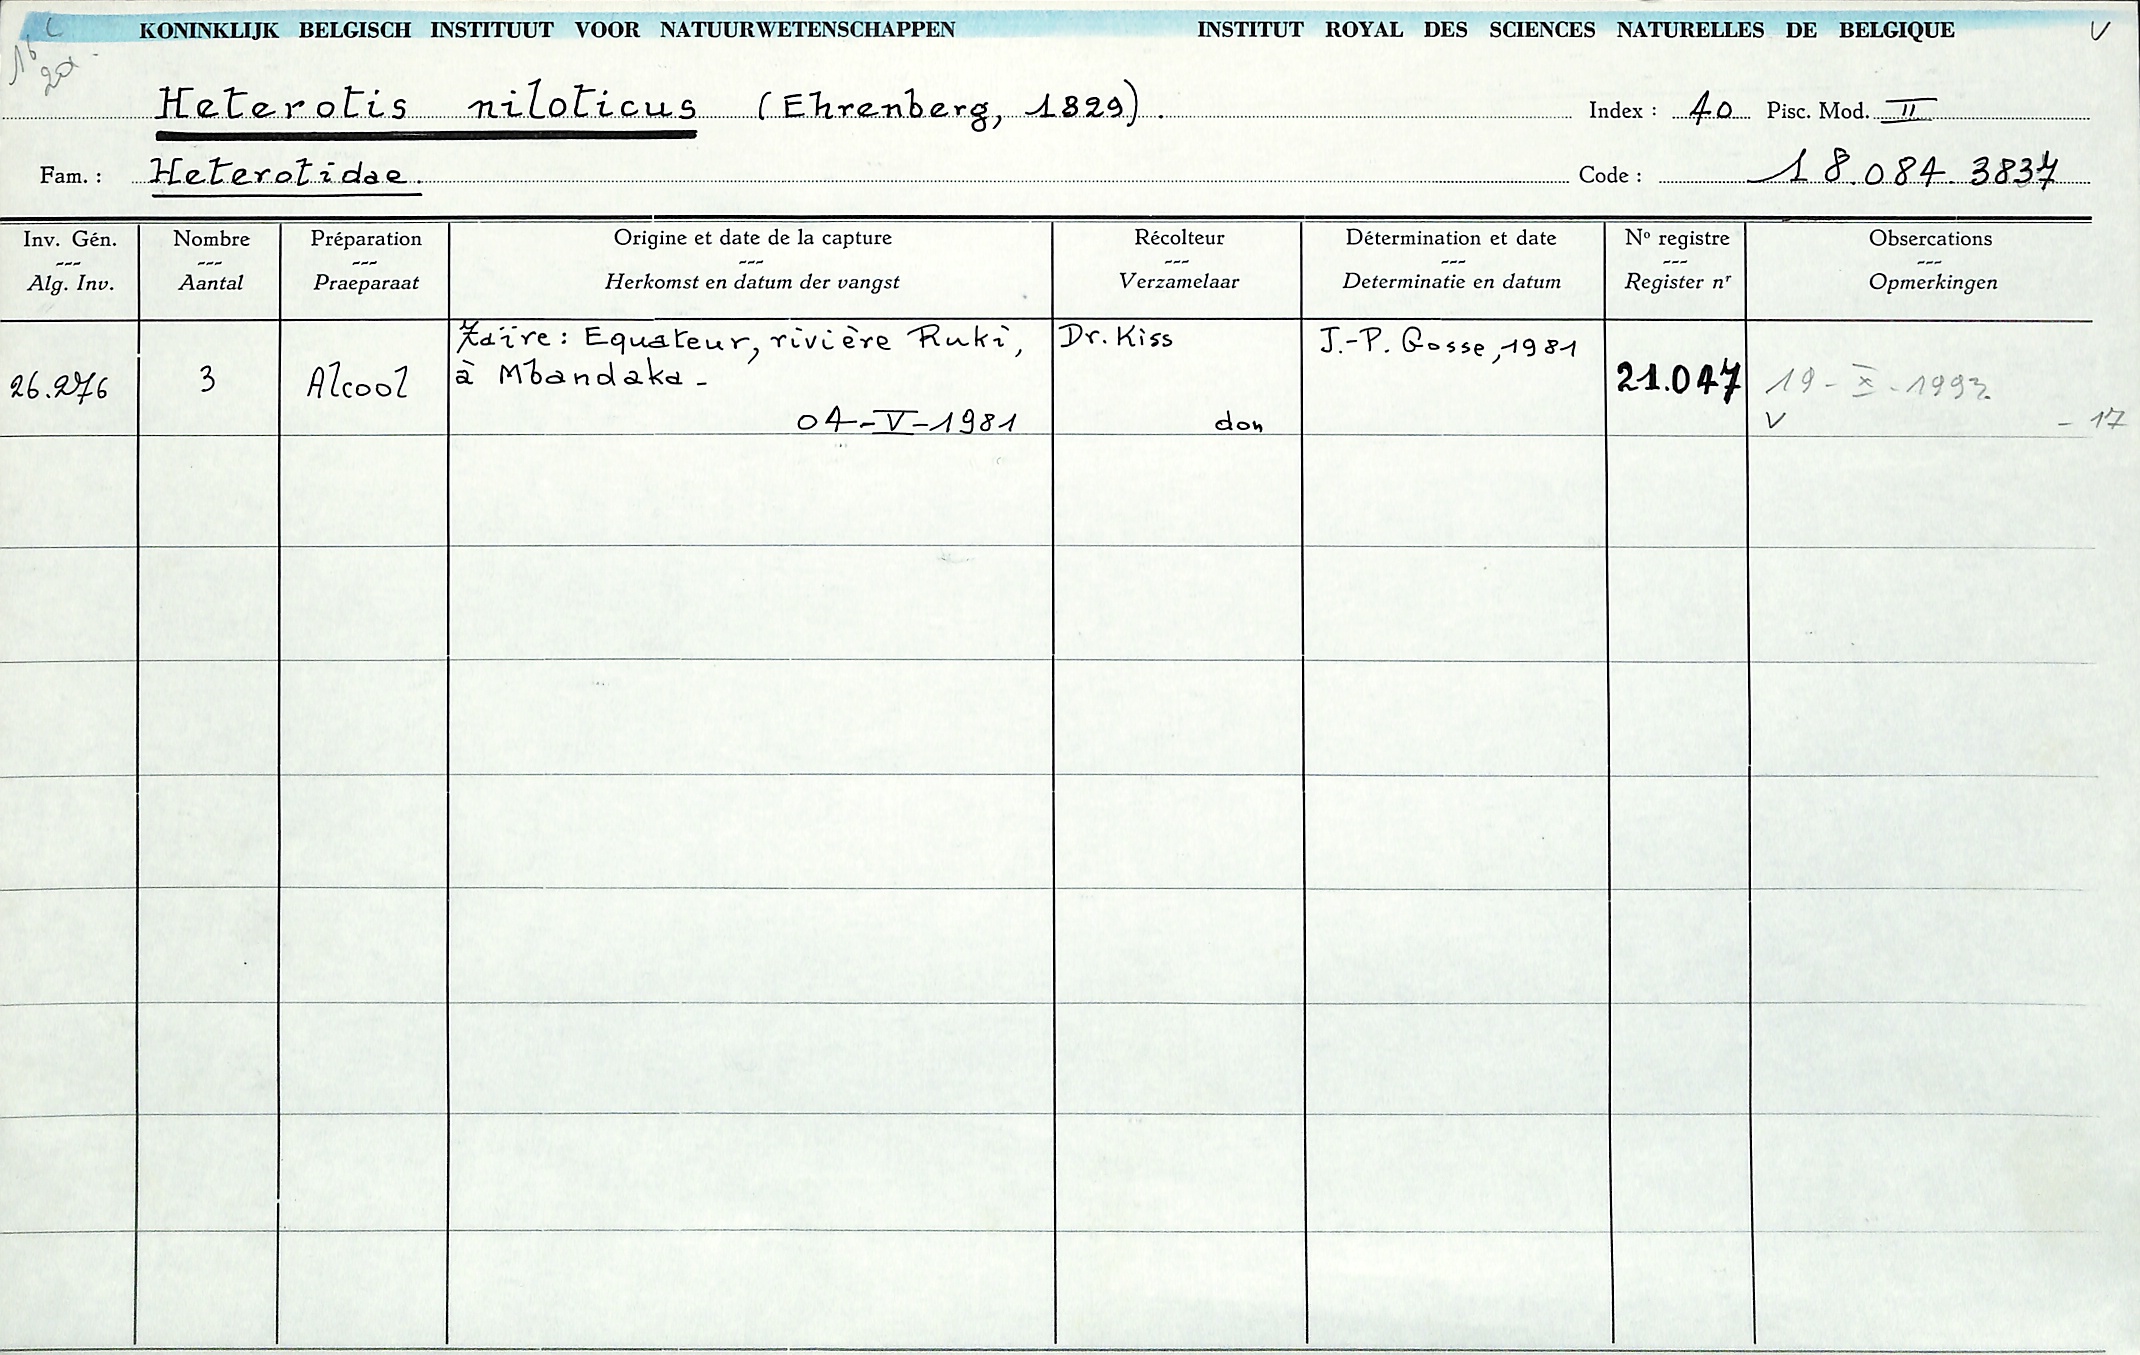 KONINKLIJK BELGISCH INSTITUUT VOOR NATUURWETENSCHAPPEN INSTITUT ROYAL DES SCIENCES NATURELLES DE BELGIQUE V
16
20
Heterotis niloticus (Ehrenberg, 1829). Index : 40 Pisc. Mod. II
Fam. : Heterotidae. Code : 18.084.3837
Inv. Gén. Nombre Préparation Origine et date de la capture Récolteur Détermination et date No registre Obsercations
--- --- --- --- --- --- --- ---
Alg. Inv. Aantal Praeparaat Herkomst en datum der vangst Verzamelaar Determinatie en datum Register nr Opmerkingen
Zaïre : Equateur, rivière Ruki, Dr. Kiss J.-P. Gosse, 1981
26.276 3 Alcool à Mbandaka - 21.047 19-X-1992
04-V-1981 don V - 17